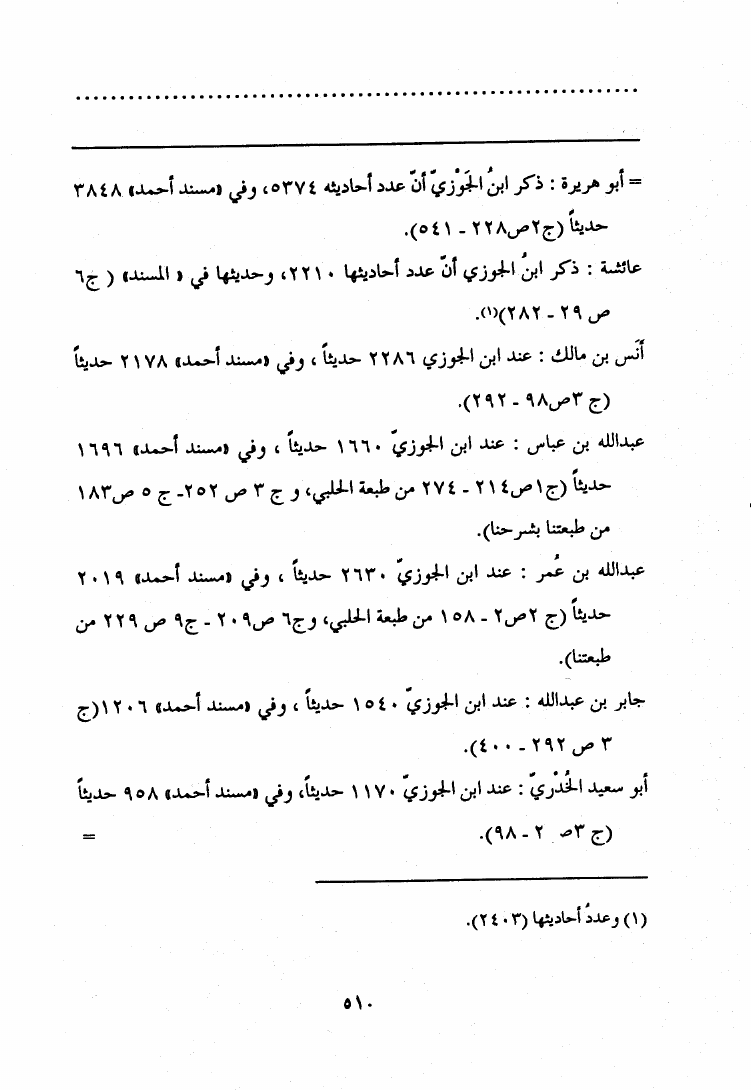 = أبو هريرة : ذكر ابنُ الجَوْزيّ أنّ عدد أحاديثه ٥٣٧٤، وفي «مسند أحمد» ٣٨٤٨
حديثاً (ج٢ص٢٢٨ - ٥٤١).
عائشة : ذكر ابنُ الجوزي أنّ عدد أحاديثها ٢٢١٠، وحديثها في « المسند» ( ج٦
ص ٢٩ - ٢٨٢)(١).
أَنَس بن مالك : عند ابن الجوزي ٢٢٨٦ حديثاً ، وفي «مسند أحمد» ٢١٧٨ حديثاً
(ج ٣ص٩٨ - ٢٩٢).
عبدالله بن عباس : عند ابن الجوزيّ ١٦٦٠ حديثاً ، وفي «مسند أحمد» ١٦٩٦
حديثاً (ج١ص٢١٤ - ٢٧٤ من طبعة الحلبي، و ج ٣ ص ٢٥٢- ج ٥ ص١٨٣
من طبعتنا بشرحنا).
عبدالله بن عُمر : عند ابن الجوزيّ ٢٦٣٠ حديثاً ، وفي «مسند أحمد» ٢٠١٩
حديثاً (ج ٢ص٢ - ١٥٨ من طبعة الحلبي، وج٦ ص٢٠٩ - ج٩ ص ٢٢٩ من
طبعتنا).
جابر بن عبدالله : عند ابن الجوزيّ ١٥٤٠ حديثاً ، وفي «مسند أحمد» ١٢٠٦(ج
٣ ص ٢٩٢ - ٤٠٠).
أبو سعيد الخُدْريّ : عند ابن الجوزيّ ١١٧٠ حديثاً، وفي «مسند أحمد» ٩٥٨ حديثاً
(ج ٣ص ٢ - ٩٨). =
(١) وعددُ أحاديثها (٢٤٠٣).
٥١٠